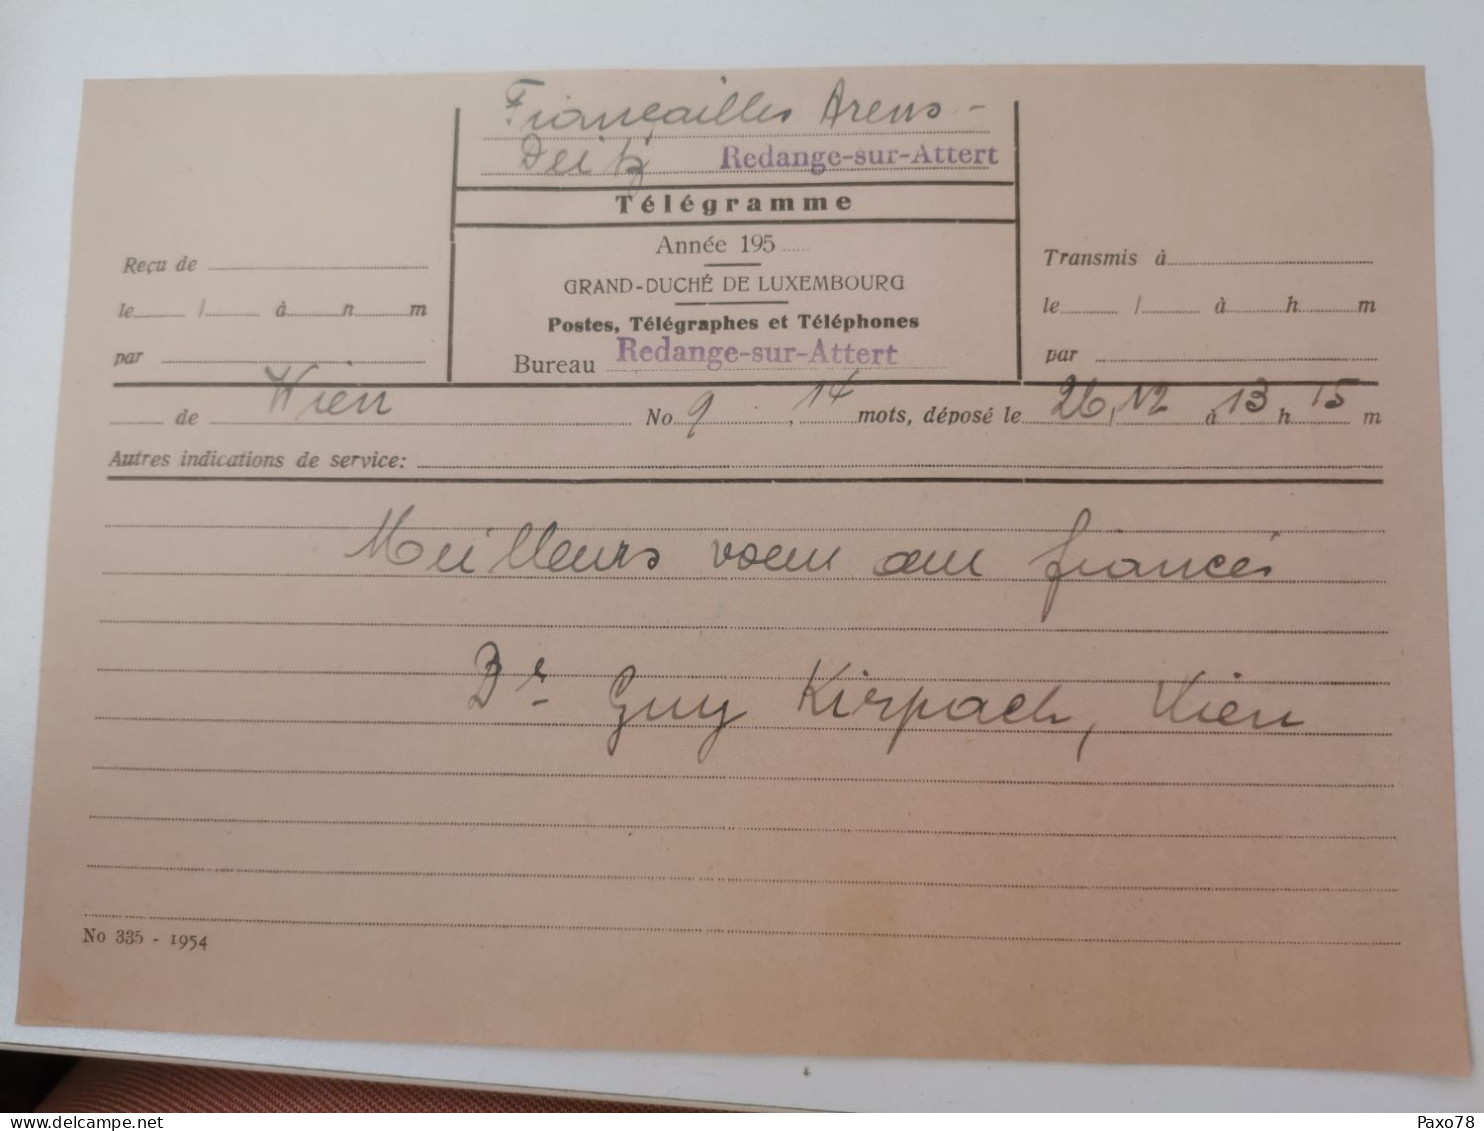 Fiançailles Arens -
Deitz Redange-sur-Attert
Télégramme
Année 195
GRAND-DUCHÉ DE LUXEMBOURG
Postes, Télégraphes et Téléphones
Bureau Redange-sur-Attert
Reçu de
le / à h m
par
Transmis à
le / à h m
par
de Wien No 9, 14 mots, déposé le 26,12 à 13 h 15 m
Autres indications de service:
Meilleurs voeux aux fiancés
Dr Guy Kirpach, Wien
No 335 - 1954
Paxo78